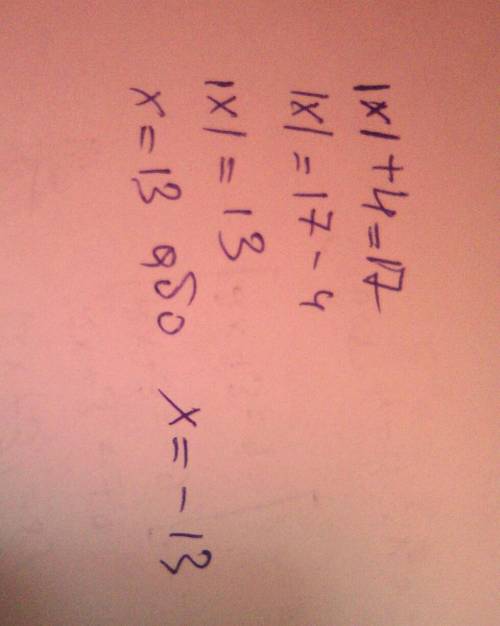 |x| + 4 = 17
|x| = 17 - 4
|x| = 13
x = 13 або x = -13